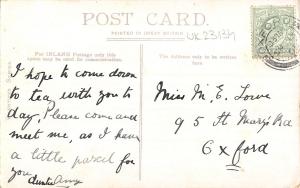 POST CARD.
PRINTED IN GREAT BRITAIN
UK 23134
For INLAND Postage only this
The Address only to be written
here
I hope to come down
to tea with you to
day, Please come and
meet me, as I have
a little parcel for
you
Auntie Amy
Miss M. E. Lowe
95 St Mary's Rd
Oxford